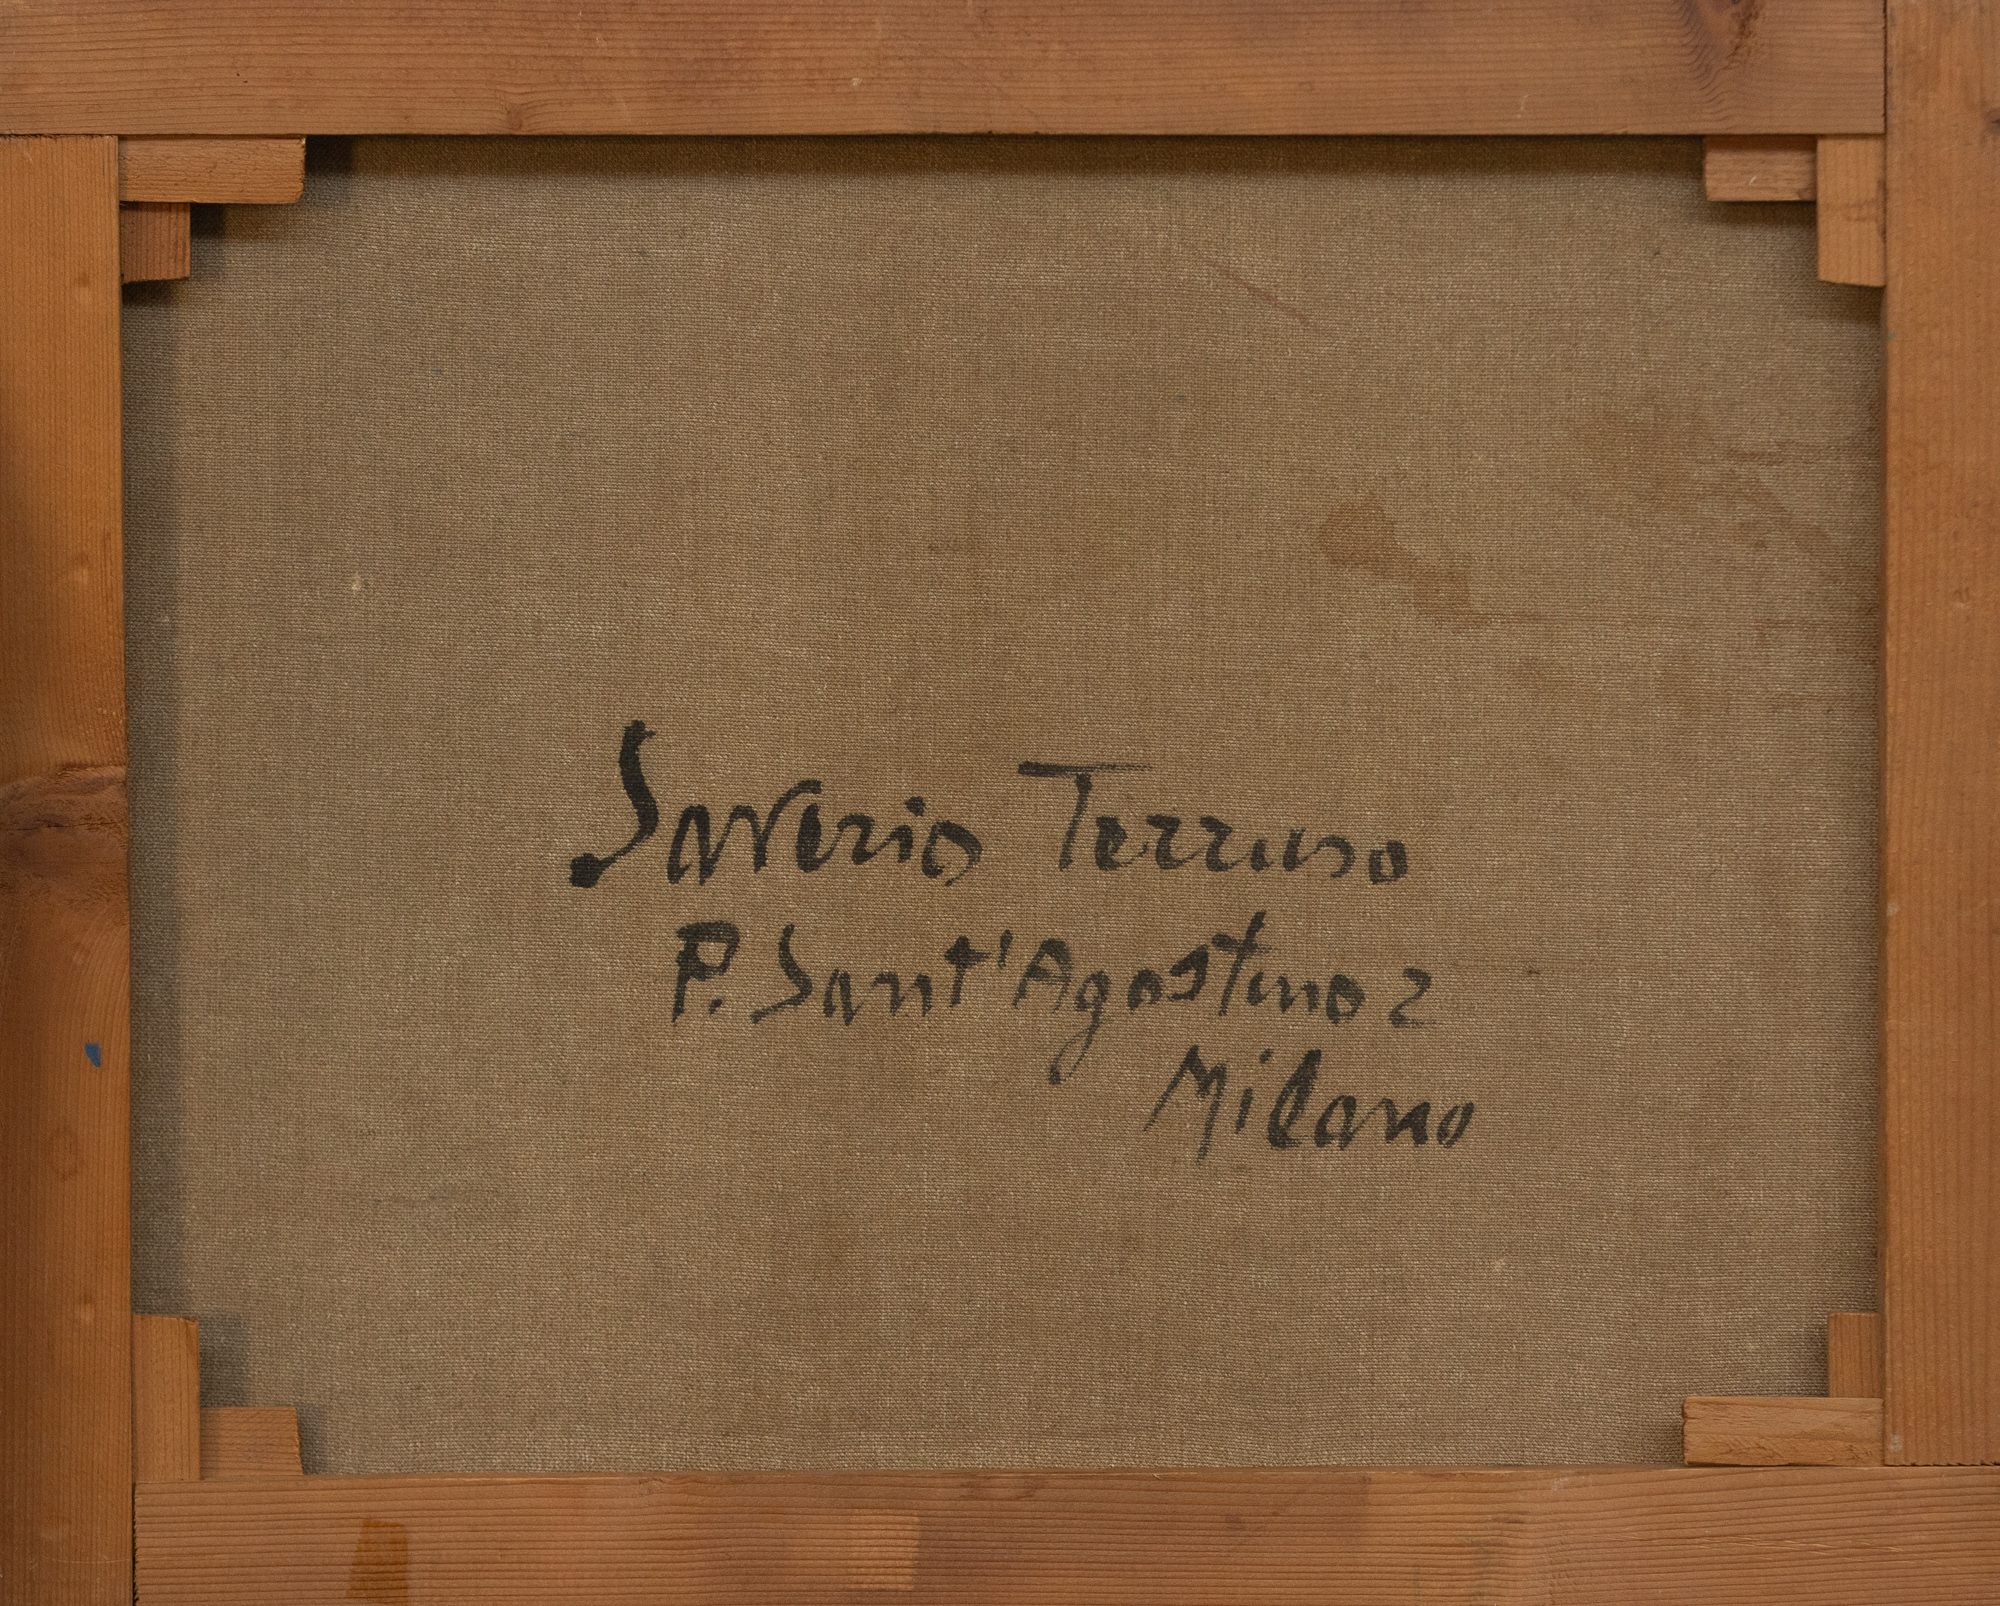 Saverio Terruso
P. Sant'Agostino 2
Milano